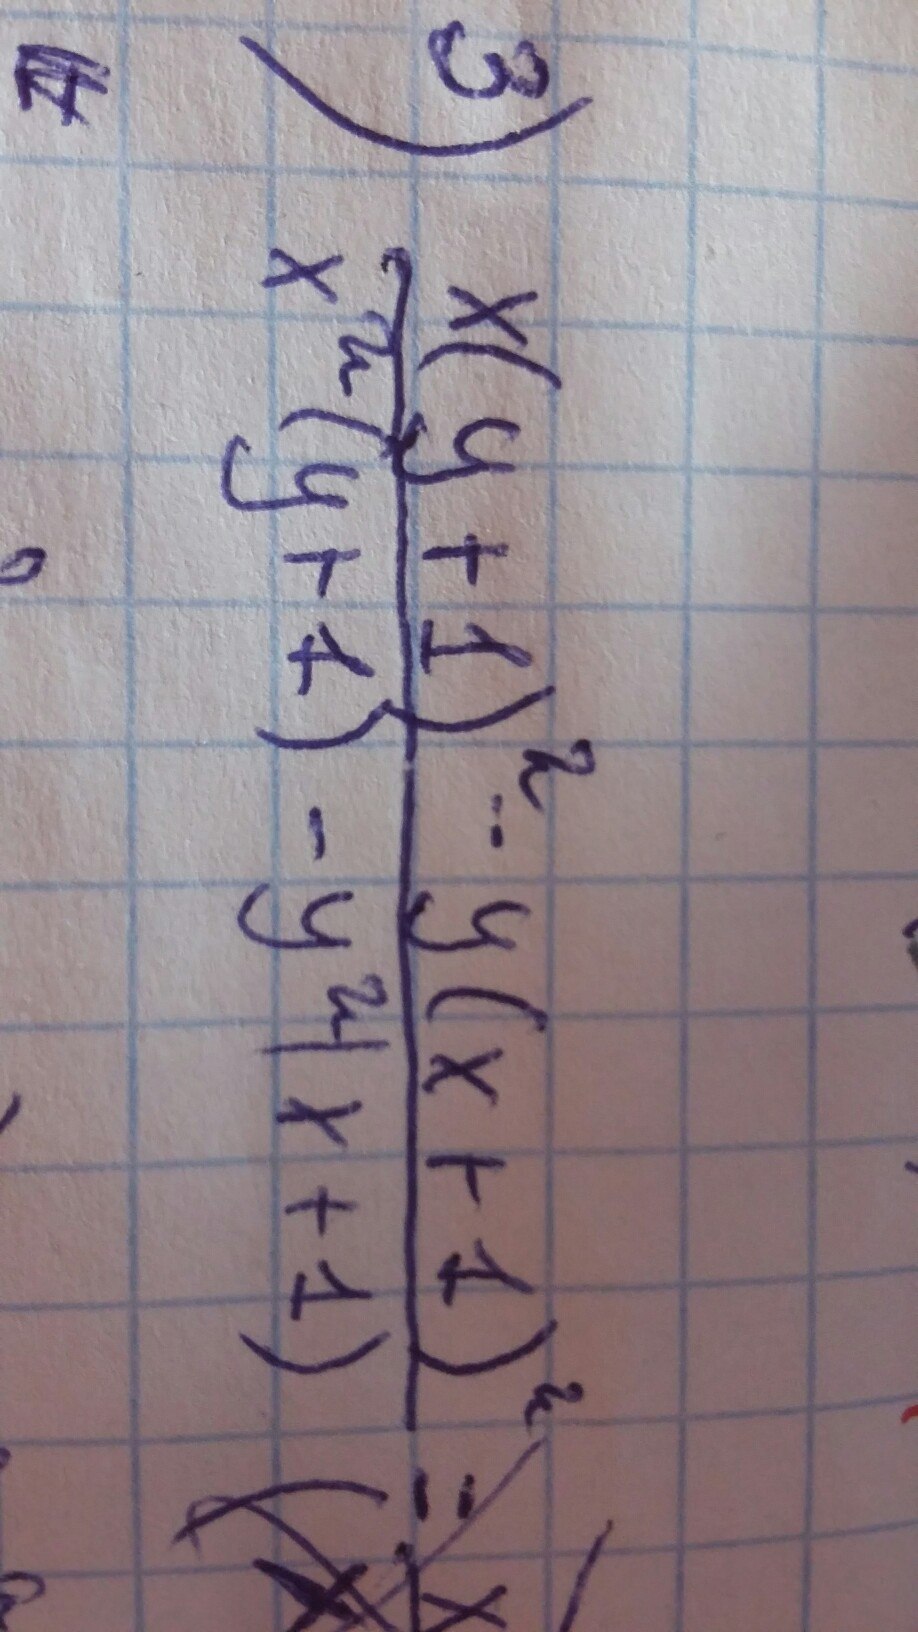 3) x(y+1)² - y(x+1)²
x²(y+1) - y²(x+1) =